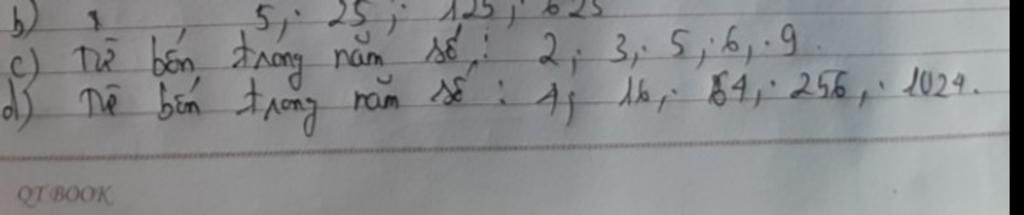 b) 1, 5; 25; 125; 625
c) Từ bốn trong năm số: 2; 3; 5; 6; 9.
d) Từ bốn trong năm số: 4; 16; 64; 256; 1024.
QT BOOK